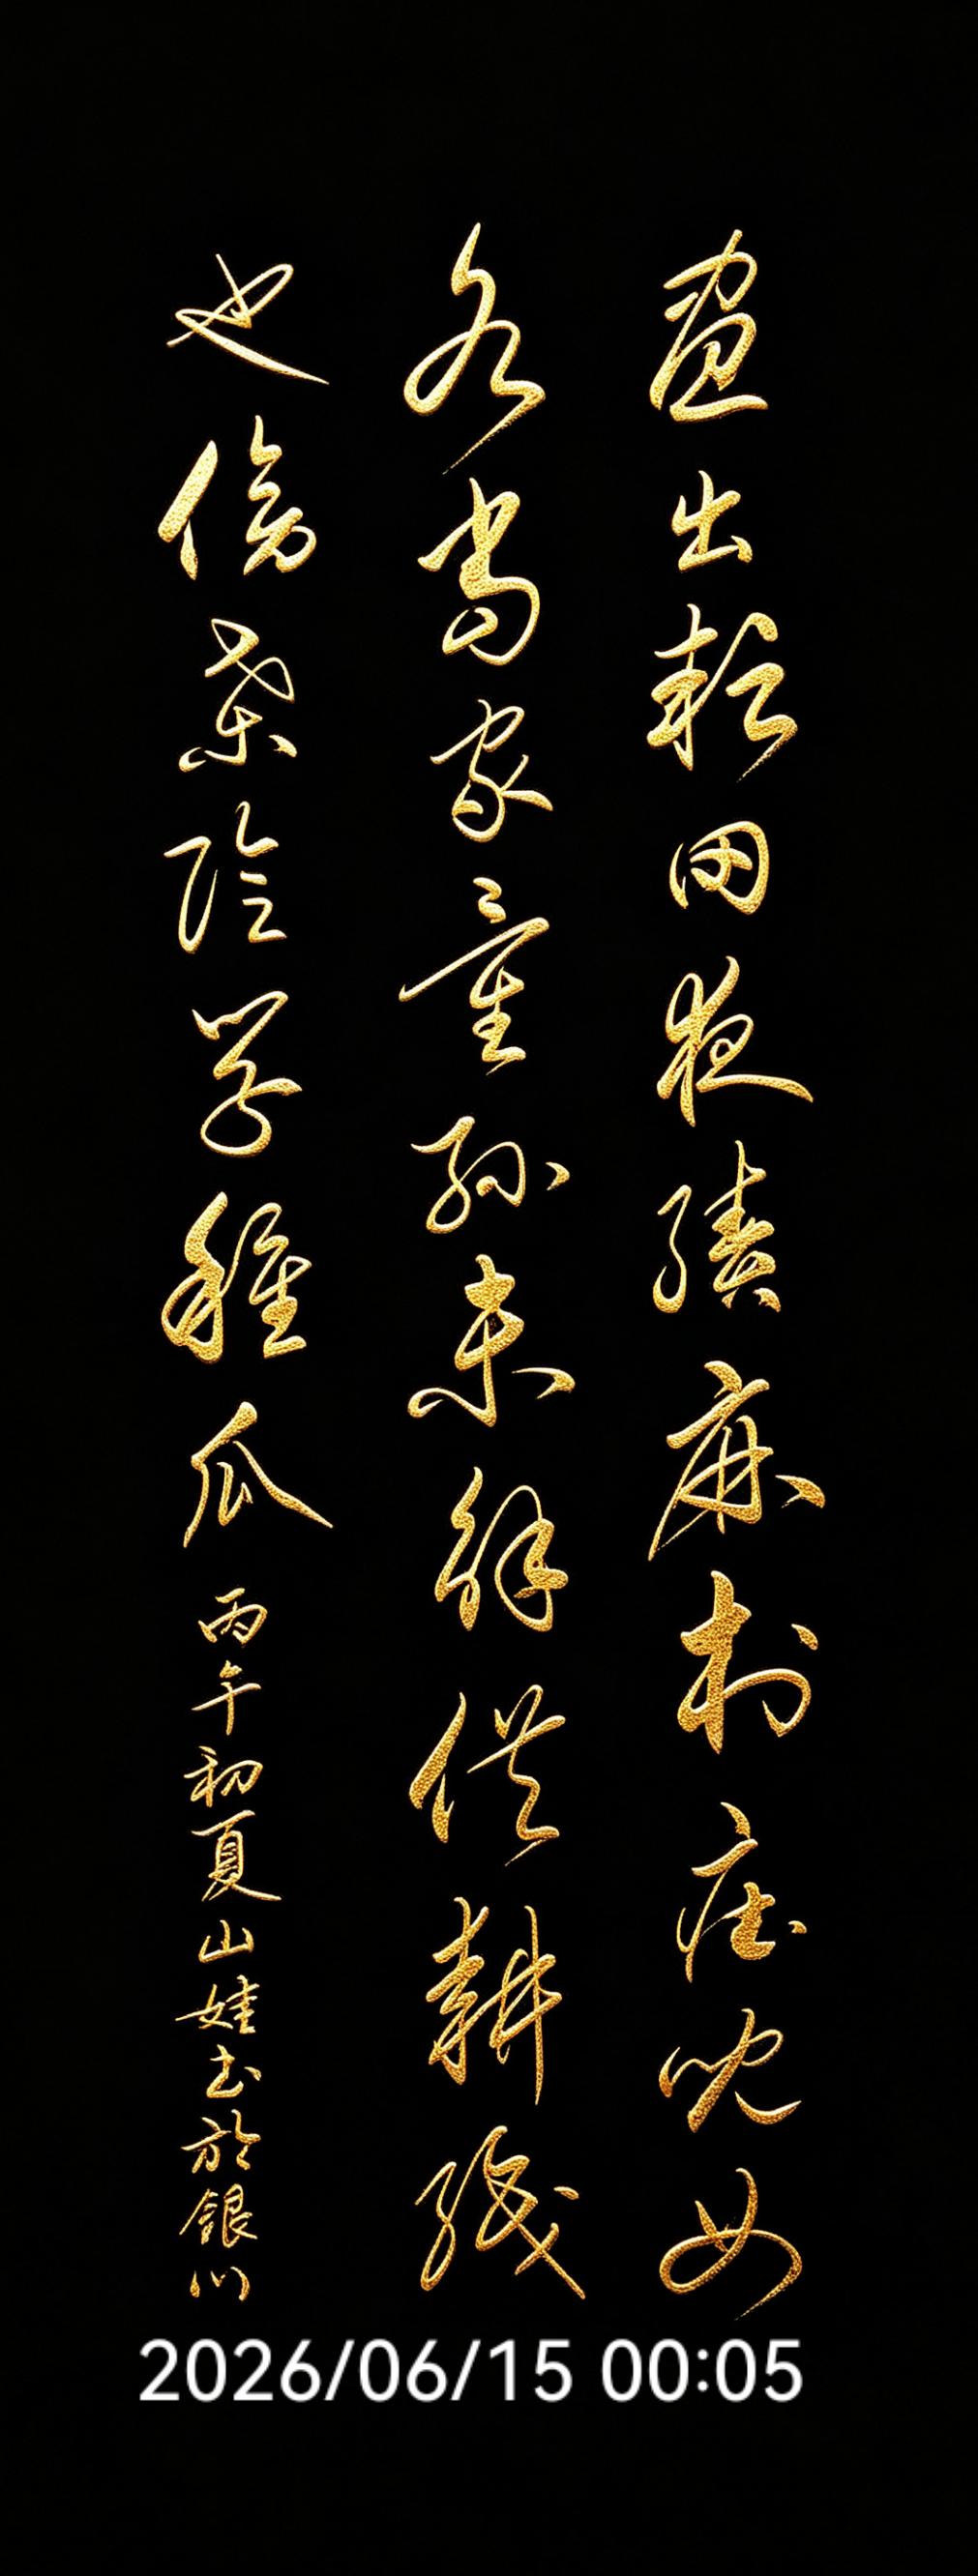 晝出耘田夜績麻村庄兒女
各當家童孫未解供耕織
也傍桑陰學種瓜 丙午初夏山娃書於銀川
2026/06/15 00:05